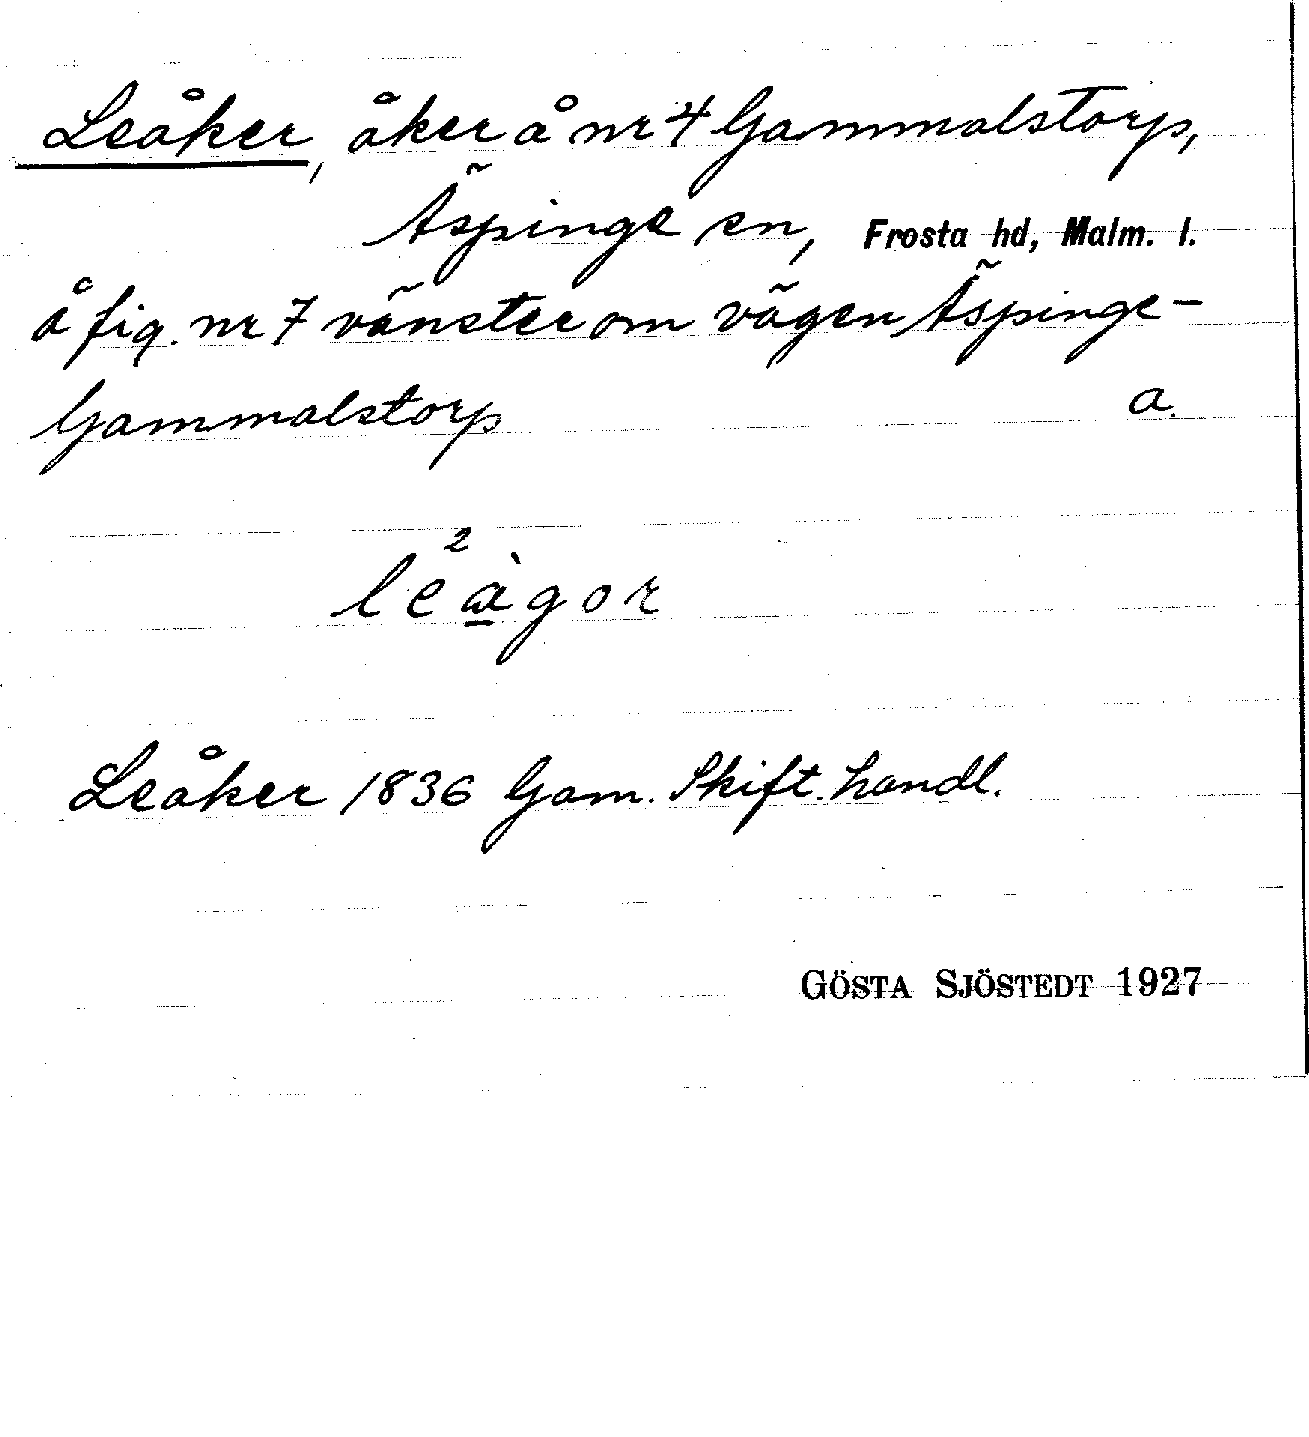 Leåker, åker å nr 4 Gammalstorp,
Äspinge sn, Frosta hd, Malm. l.
å fig. nr 7 vänster om vägen Äspinge-
Gammalstorp a.
2
leàgor
Leåker 1836 Gam. Skift. handl.
GÖSTA SJÖSTEDT 1927